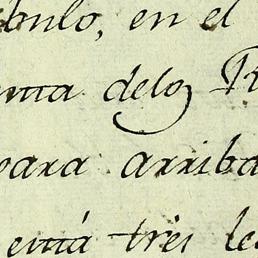 bulo, en el
delos
para arriba
tres le